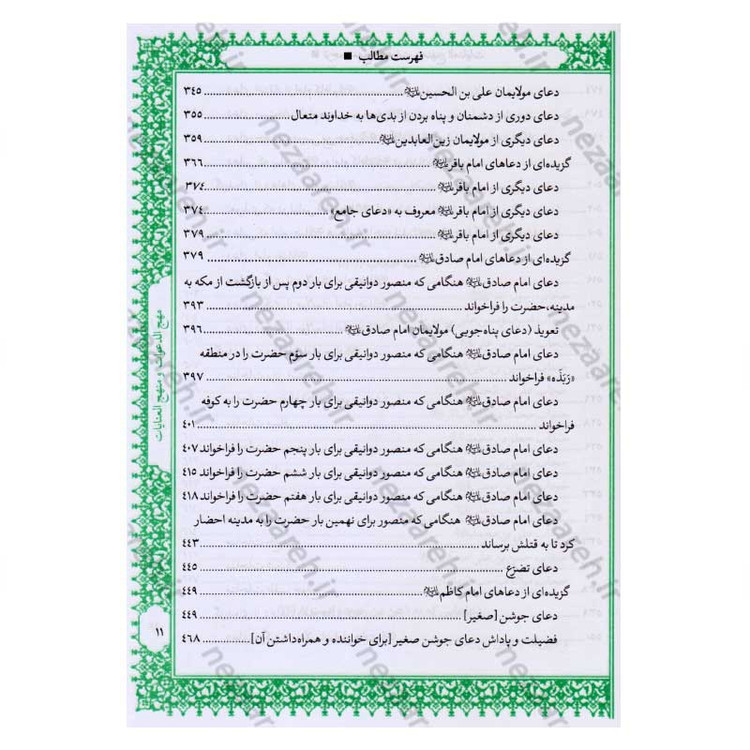 فهرست مطالب ■
دعای مولایمان علی بن الحسین ................ ۳۴۵
دعای دوری از دشمنان و پناه بردن از بدی‌ها به خداوند متعال ................ ۳۵۵
دعای دیگری از مولایمان زین‌العابدین ................ ۳۵۹
گزیده‌ای از دعاهای امام باقر ................ ۳۶۶
دعای دیگری از امام باقر ................ ۳۷۴
دعای دیگری از امام باقر معروف به «دعای جامع» ................ ۳۷۴
دعای دیگری از امام باقر ................ ۳۷۹
گزیده‌ای از دعاهای امام صادق ................ ۳۷۹
دعای امام صادق هنگامی که منصور دوانیقی برای بار دوم پس از بازگشت از مکه به
مدینه، حضرت را فراخواند ................ ۳۹۳
تعویذ (دعای پناه‌جویی) مولایمان امام صادق ................ ۳۹۶
دعای امام صادق هنگامی که منصور دوانیقی برای بار سوّم حضرت را در منطقه
«رَبَذَه» فراخواند ................ ۳۹۷
دعای امام صادق هنگامی که منصور دوانیقی برای بار چهارم حضرت را به کوفه
فراخواند ................ ۴۰۱
دعای امام صادق هنگامی که منصور دوانیقی برای بار پنجم حضرت را فراخواند ۴۰۷
دعای امام صادق هنگامی که منصور دوانیقی برای بار ششم حضرت را فراخواند ۴۱۵
دعای امام صادق هنگامی که منصور دوانیقی برای بار هفتم حضرت را فراخواند ۴۱۸
دعای امام صادق هنگامی که منصور برای نهمین بار حضرت را به مدینه احضار
کرد تا به قتلش برساند ................ ۴۴۳
دعای تضرّع ................ ۴۴۵
گزیده‌ای از دعاهای امام کاظم ................ ۴۴۹
دعای جوشن [صغیر] ................ ۴۴۹
فضیلت و پاداش دعای جوشن صغیر [برای خواننده و همراه‌داشتن آن] ................ ۴۶۸
مهج الدعوات و منهج العنایات
۱۱
nezaareh.ir